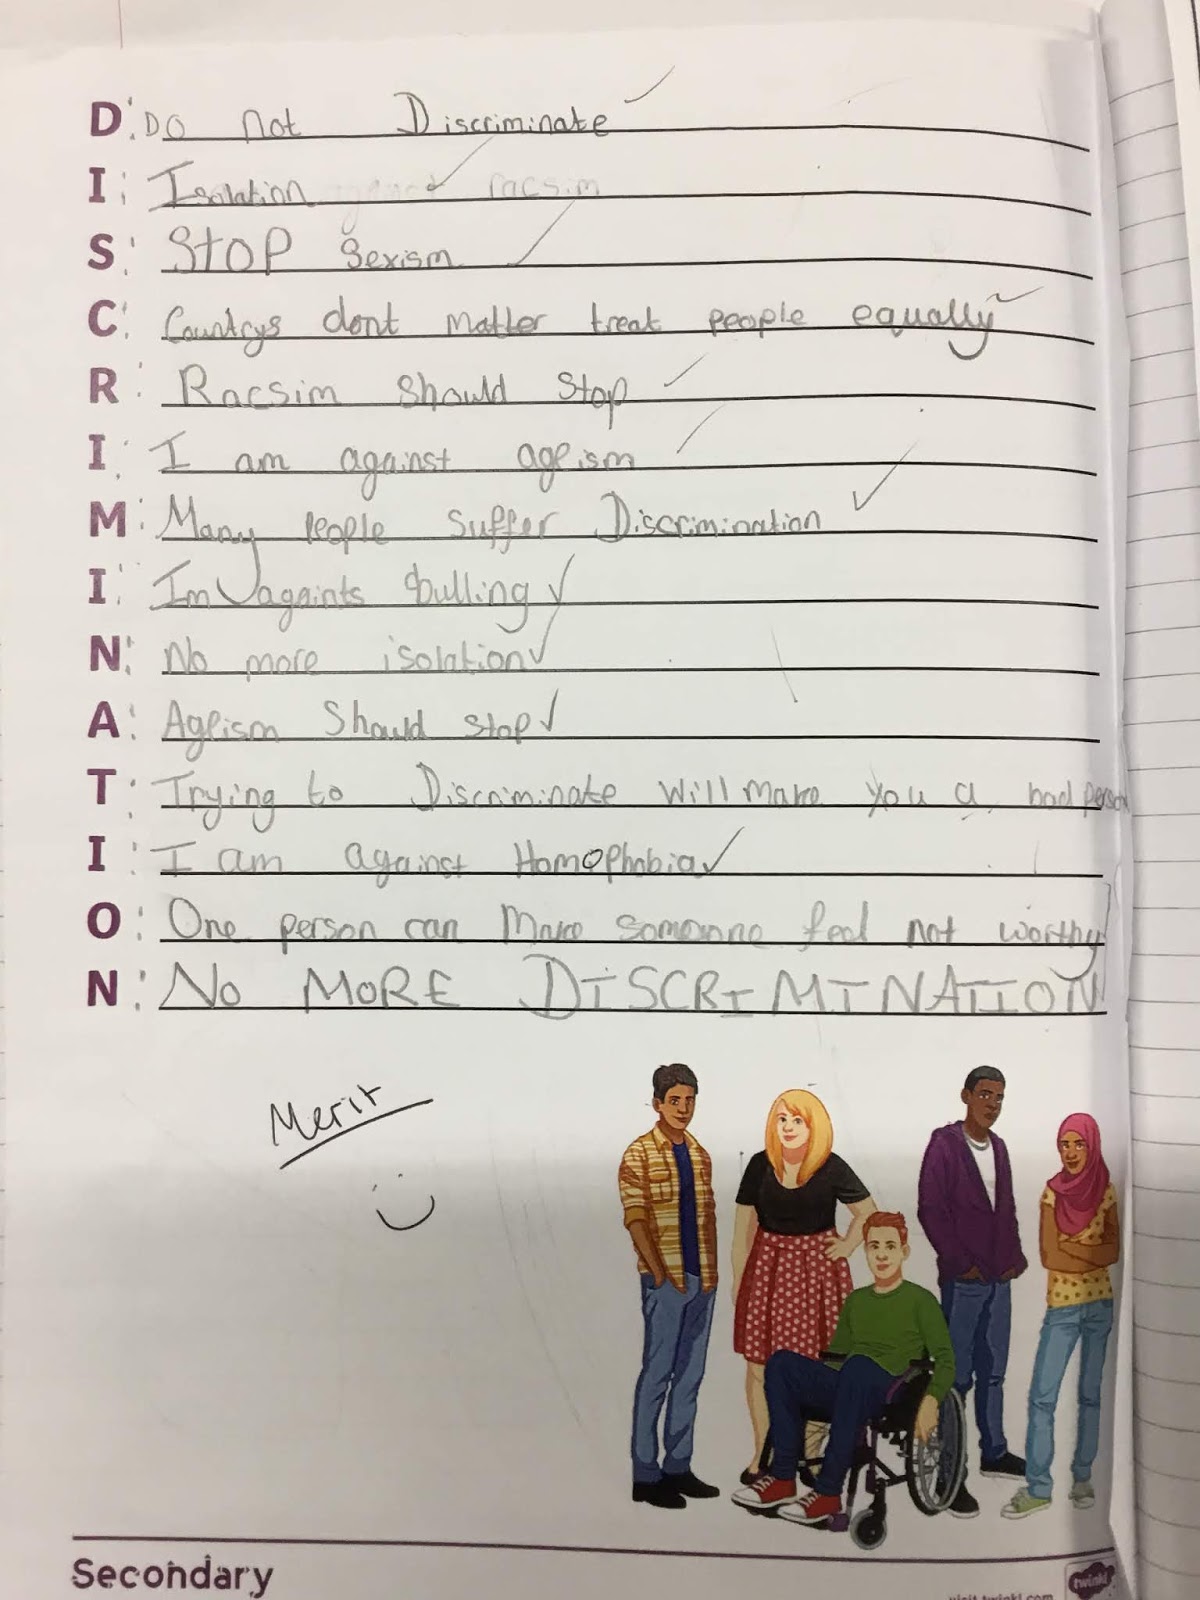 D: Do not Discriminate
I: Isolation against racsim
S: STOP Sexism
C: Countrys dont matter treat people equally
R: Racsim Should Stop
I: I am against ageism
M: Many People Suffer Discrimination
I: Im againts bulling
N: No more isolation
A: Ageism Should stop
T: Trying to Discriminate will make you a bad person
I: I am against Homophobia
O: One person can Make someonne feel not worthy
N: No MORE DISCRIMINATION
Merit
Secondary
twinkl
visit twinkl.com